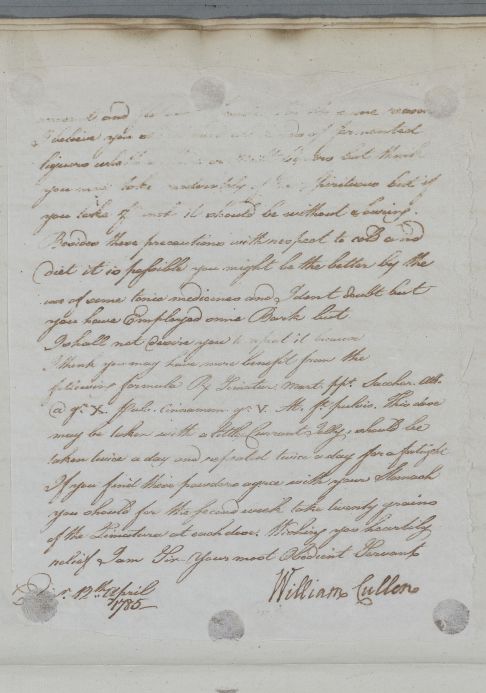 and
I believe you of fermented
liquors but think
you may take moderately of the spiritous but if
you take of it should be without souring.
Besides these precautions with respect to cold and
diet it is possible you might be the better by the
use of some tonic medicines and I dont doubt but
you have Employed some Bark but
I shall not desire you to repeat it because
I think you may have more benefit from the
following formula Rx Limatur. mart. ppt. Sacchar. alb.
@ gr. X. Pulv. Cinnamom gr. V. M. ft. pulvis. This dose
may be taken with a little Currant Jelly, should be
taken twice a day and repeated twice a day for a fortnight
If you find these powders agree with your Stomach
you should for the second week take twenty grains
of the Limatura at each dose. Wishing you heartily
relief I am Sir Your most Obedient Servant
12th April William Cullen
1785